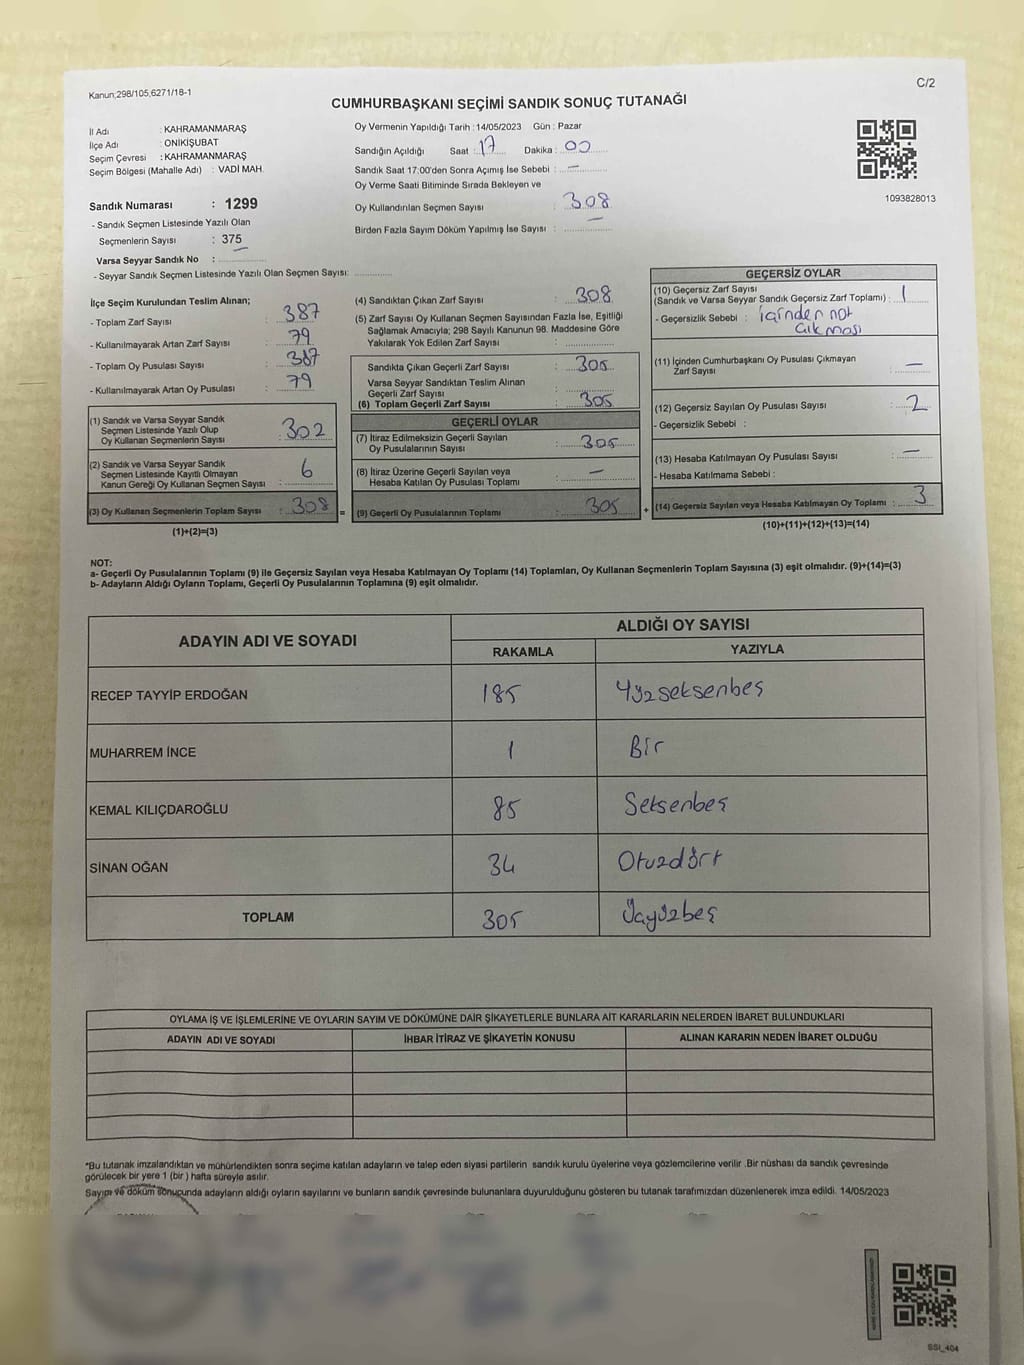 Kanun;298/105,6271/18-1
C/2
CUMHURBAŞKANI SEÇİMİ SANDIK SONUÇ TUTANAĞI
İl Adı : KAHRAMANMARAŞ
İlçe Adı : ONİKİŞUBAT
Seçim Çevresi : KAHRAMANMARAŞ
Seçim Bölgesi (Mahalle Adı) : VADİ MAH.
Sandık Numarası : 1299
- Sandık Seçmen Listesinde Yazılı Olan
Seçmenlerin Sayısı : 375
Varsa Seyyar Sandık No :
- Seyyar Sandık Seçmen Listesinde Yazılı Olan Seçmen Sayısı:
Oy Vermenin Yapıldığı Tarih : 14/05/2023 Gün : Pazar
Sandığın Açıldığı Saat : 17 Dakika : 00
Sandık Saat 17:00'den Sonra Açımış İse Sebebi : —
Oy Verme Saati Bitiminde Sırada Bekleyen ve
Oy Kullandırılan Seçmen Sayısı : 308
Birden Fazla Sayım Döküm Yapılmış İse Sayısı : —
1093828013
İlçe Seçim Kurulundan Teslim Alınan;
- Toplam Zarf Sayısı : 387
- Kullanılmayarak Artan Zarf Sayısı : 79
- Toplam Oy Pusulası Sayısı : 387
- Kullanılmayarak Artan Oy Pusulası : 79
(1) Sandık ve Varsa Seyyar Sandık
Seçmen Listesinde Yazılı Olup
Oy Kullanan Seçmenlerin Sayısı : 302
(2) Sandık ve Varsa Seyyar Sandık
Seçmen Listesinde Kayıtlı Olmayan
Kanun Gereği Oy Kullanan Seçmen Sayısı : 6
(3) Oy Kullanan Seçmenlerin Toplam Sayısı : 308 =
(1)+(2)=(3)
(4) Sandıktan Çıkan Zarf Sayısı : 308
(5) Zarf Sayısı Oy Kullanan Seçmen Sayısından Fazla İse, Eşitliği
Sağlamak Amacıyla; 298 Sayılı Kanunun 98. Maddesine Göre
Yakılarak Yok Edilen Zarf Sayısı :
Sandıkta Çıkan Geçerli Zarf Sayısı : 305
Varsa Seyyar Sandıktan Teslim Alınan
Geçerli Zarf Sayısı :
(6) Toplam Geçerli Zarf Sayısı : 305
GEÇERLİ OYLAR
(7) İtiraz Edilmeksizin Geçerli Sayılan
Oy Pusulalarının Sayısı : 305
(8) İtiraz Üzerine Geçerli Sayılan veya
Hesaba Katılan Oy Pusulası Toplamı : —
(9) Geçerli Oy Pusulalarının Toplamı : 305 +
GEÇERSİZ OYLAR
(10) Geçersiz Zarf Sayısı
(Sandık ve Varsa Seyyar Sandık Geçersiz Zarf Toplamı) : 1
- Geçersizlik Sebebi : içinden not
çıkması
(11) İçinden Cumhurbaşkanı Oy Pusulası Çıkmayan
Zarf Sayısı : —
(12) Geçersiz Sayılan Oy Pusulası Sayısı : 2
- Geçersizlik Sebebi :
(13) Hesaba Katılmayan Oy Pusulası Sayısı : —
- Hesaba Katılmama Sebebi :
(14) Geçersiz Sayılan veya Hesaba Katılmayan Oy Toplamı : 3
(10)+(11)+(12)+(13)=(14)
NOT:
a- Geçerli Oy Pusulalarının Toplamı (9) ile Geçersiz Sayılan veya Hesaba Katılmayan Oy Toplamı (14) Toplamları, Oy Kullanan Seçmenlerin Toplam Sayısına (3) eşit olmalıdır. (9)+(14)=(3)
b- Adayların Aldığı Oyların Toplamı, Geçerli Oy Pusulalarının Toplamına (9) eşit olmalıdır.
ADAYIN ADI VE SOYADI
ALDIĞI OY SAYISI
RAKAMLA YAZIYLA
RECEP TAYYİP ERDOĞAN 185 Yüzseksenbeş
MUHARREM İNCE 1 Bir
KEMAL KILIÇDAROĞLU 85 Seksenbeş
SİNAN OĞAN 34 Otuzdört
TOPLAM 305 Üçyüzbeş
OYLAMA İŞ VE İŞLEMLERİNE VE OYLARIN SAYIM VE DÖKÜMÜNE DAİR ŞİKAYETLERLE BUNLARA AİT KARARLARIN NELERDEN İBARET BULUNDUKLARI
ADAYIN ADI VE SOYADI İHBAR İTİRAZ VE ŞİKAYETİN KONUSU ALINAN KARARIN NEDEN İBARET OLDUĞU
*Bu tutanak imzalandıktan ve mühürlendikten sonra seçime katılan adayların ve talep eden siyasi partilerin sandık kurulu üyelerine veya gözlemcilerine verilir .Bir nüshası da sandık çevresinde
görülecek bir yere 1 (bir ) hafta süreyle asılır.
Sayım ve döküm sonucunda adayların aldığı oyların sayılarını ve bunların sandık çevresinde bulunanlara duyurulduğunu gösteren bu tutanak tarafımızdan düzenlenerek imza edildi. 14/05/2023
SSI_404